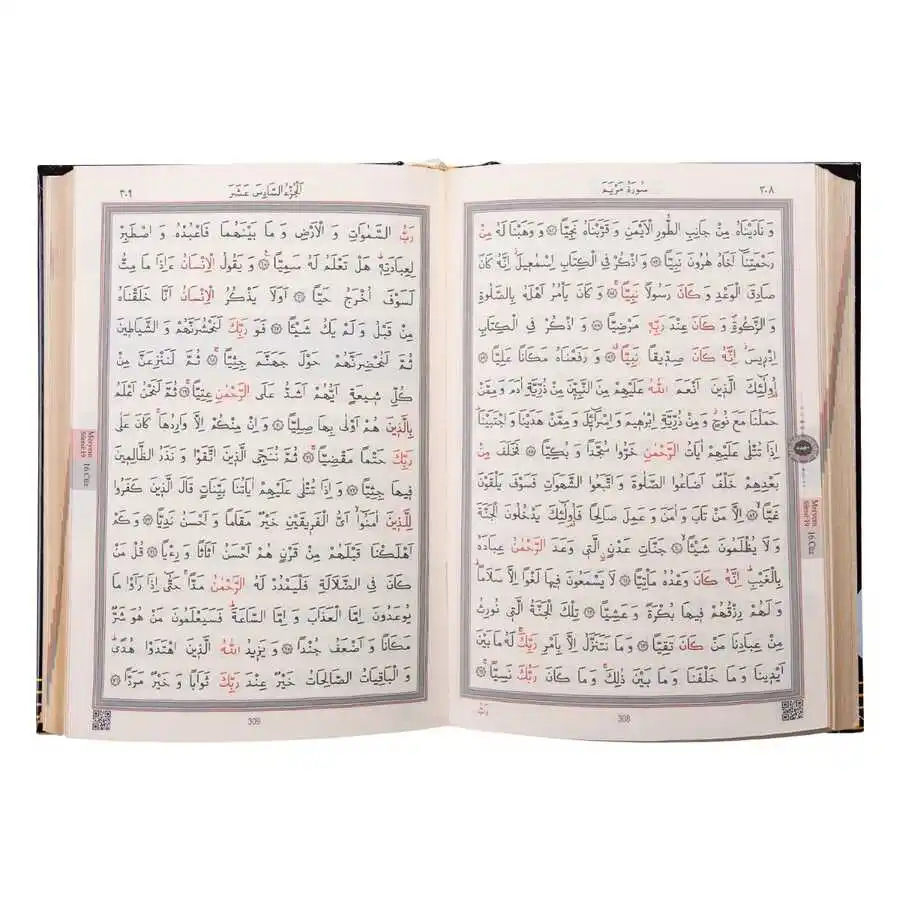 ٣٠٨
سُورَةُ مَرْيَمَ
وَ نَادَيْنَاهُ مِنْ جَانِبِ الطُّورِ الْاَيْمَنِ وَ قَرَّبْنَاهُ نَجِيًّا ۝٥٢ وَ وَهَبْنَا لَهُ مِنْ
رَحْمَتِنَٓا اَخَاهُ هٰرُونَ نَبِيًّا ۝٥٣ وَ اذْكُرْ فِي الْكِتَابِ اِسْمٰعٖيلَ اِنَّهُ كَانَ
صَادِقَ الْوَعْدِ وَ كَانَ رَسُولًا نَبِيًّا ۝٥٤ وَ كَانَ يَاْمُرُ اَهْلَهُ بِالصَّلٰوةِ
وَ الزَّكٰوةِ وَ كَانَ عِنْدَ رَبِّهٖ مَرْضِيًّا ۝٥٥ وَ اذْكُرْ فِي الْكِتَابِ
اِدْرٖيسَ اِنَّهُ كَانَ صِدّٖيقًا نَبِيًّا ۝٥٦ وَ رَفَعْنَاهُ مَكَانًا عَلِيًّا ۝٥٧
اُولٰٓئِكَ الَّذٖينَ اَنْعَمَ اللّٰهُ عَلَيْهِمْ مِنَ النَّبِيّٖنَ مِنْ ذُرِّيَّةِ اٰدَمَ وَ مِمَّنْ
حَمَلْنَا مَعَ نُوحٍ وَ مِنْ ذُرِّيَّةِ اِبْرٰهٖيمَ وَ اِسْرَٓائٖلَ وَ مِمَّنْ هَدَيْنَا وَ اجْتَبَيْنَا
اِذَا تُتْلٰى عَلَيْهِمْ اٰيَاتُ الرَّحْمٰنِ خَرُّوا سُجَّدًا وَ بُكِيًّا ۝٥٨ فَخَلَفَ مِنْ
بَعْدِهِمْ خَلْفٌ اَضَاعُوا الصَّلٰوةَ وَ اتَّبَعُوا الشَّهَوَاتِ فَسَوْفَ يَلْقَوْنَ
غَيًّا ۝٥٩ اِلَّا مَنْ تَابَ وَ اٰمَنَ وَ عَمِلَ صَالِحًا فَاُولٰٓئِكَ يَدْخُلُونَ الْجَنَّةَ
وَ لَا يُظْلَمُونَ شَيْـًٔا ۝٦٠ جَنَّاتِ عَدْنٍ الَّتٖي وَعَدَ الرَّحْمٰنُ عِبَادَهُ
بِالْغَيْبِ اِنَّهُ كَانَ وَعْدُهُ مَاْتِيًّا ۝٦١ لَا يَسْمَعُونَ فٖيهَا لَغْوًا اِلَّا سَلَامًا
وَ لَهُمْ رِزْقُهُمْ فٖيهَا بُكْرَةً وَ عَشِيًّا ۝٦٢ تِلْكَ الْجَنَّةُ الَّتٖي نُورِثُ
مِنْ عِبَادِنَا مَنْ كَانَ تَقِيًّا ۝٦٣ وَ مَا نَتَنَزَّلُ اِلَّا بِاَمْرِ رَبِّكَ لَهُ مَا بَيْنَ
اَيْدٖينَا وَ مَا خَلْفَنَا وَ مَا بَيْنَ ذٰلِكَ وَ مَا كَانَ رَبُّكَ نَسِيًّا ۝٦٤
رَبُّ
308
Meryem
Sûresi 19
16.Cüz
٣٠٩
اَلْجُزْءُ السَّادِسَ عَشَرَ
رَبُّ السَّمٰوَاتِ وَ الْاَرْضِ وَ مَا بَيْنَهُمَا فَاعْبُدْهُ وَ اصْطَبِرْ
لِعِبَادَتِهٖ هَلْ تَعْلَمُ لَهُ سَمِيًّا ۝٦٥ وَ يَقُولُ الْاِنْسَانُ ءَاِذَا مَا مِتُّ
لَسَوْفَ اُخْرَجُ حَيًّا ۝٦٦ اَوَلَا يَذْكُرُ الْاِنْسَانُ اَنَّا خَلَقْنَاهُ
مِنْ قَبْلُ وَ لَمْ يَكُ شَيْـًٔا ۝٦٧ فَوَ رَبِّكَ لَنَحْشُرَنَّهُمْ وَ الشَّيَاطٖينَ
ثُمَّ لَنُحْضِرَنَّهُمْ حَوْلَ جَهَنَّمَ جِثِيًّا ۝٦٨ ثُمَّ لَنَنْزِعَنَّ مِنْ
كُلِّ شٖيعَةٍ اَيُّهُمْ اَشَدُّ عَلَى الرَّحْمٰنِ عِتِيًّا ۝٦٩ ثُمَّ لَنَحْنُ اَعْلَمُ
بِالَّذٖينَ هُمْ اَوْلٰى بِهَا صِلِيًّا ۝٧٠ وَ اِنْ مِنْكُمْ اِلَّا وَارِدُهَا كَانَ عَلٰى
رَبِّكَ حَتْمًا مَقْضِيًّا ۝٧١ ثُمَّ نُنَجِّي الَّذٖينَ اتَّقَوْا وَ نَذَرُ الظَّالِمٖينَ
فٖيهَا جِثِيًّا ۝٧٢ وَ اِذَا تُتْلٰى عَلَيْهِمْ اٰيَاتُنَا بَيِّنَاتٍ قَالَ الَّذٖينَ كَفَرُوا
لِلَّذٖينَ اٰمَنُٓوا اَيُّ الْفَرٖيقَيْنِ خَيْرٌ مَقَامًا وَ اَحْسَنُ نَدِيًّا ۝٧٣ وَ كَمْ
اَهْلَكْنَا قَبْلَهُمْ مِنْ قَرْنٍ هُمْ اَحْسَنُ اَثَاثًا وَ رِءْيًا ۝٧٤ قُلْ مَنْ
كَانَ فِي الضَّلَالَةِ فَلْيَمْدُدْ لَهُ الرَّحْمٰنُ مَدًّا حَتّٰٓى اِذَا رَاَوْا مَا
يُوعَدُونَ اِمَّا الْعَذَابَ وَ اِمَّا السَّاعَةَ فَسَيَعْلَمُونَ مَنْ هُوَ شَرٌّ
مَكَانًا وَ اَضْعَفُ جُنْدًا ۝٧٥ وَ يَزٖيدُ اللّٰهُ الَّذٖينَ اهْتَدَوْا هُدًى
وَ الْبَاقِيَاتُ الصَّالِحَاتُ خَيْرٌ عِنْدَ رَبِّكَ ثَوَابًا وَ خَيْرٌ مَرَدًّا ۝٧٦
309
Meryem
Sûresi 19
16.Cüz